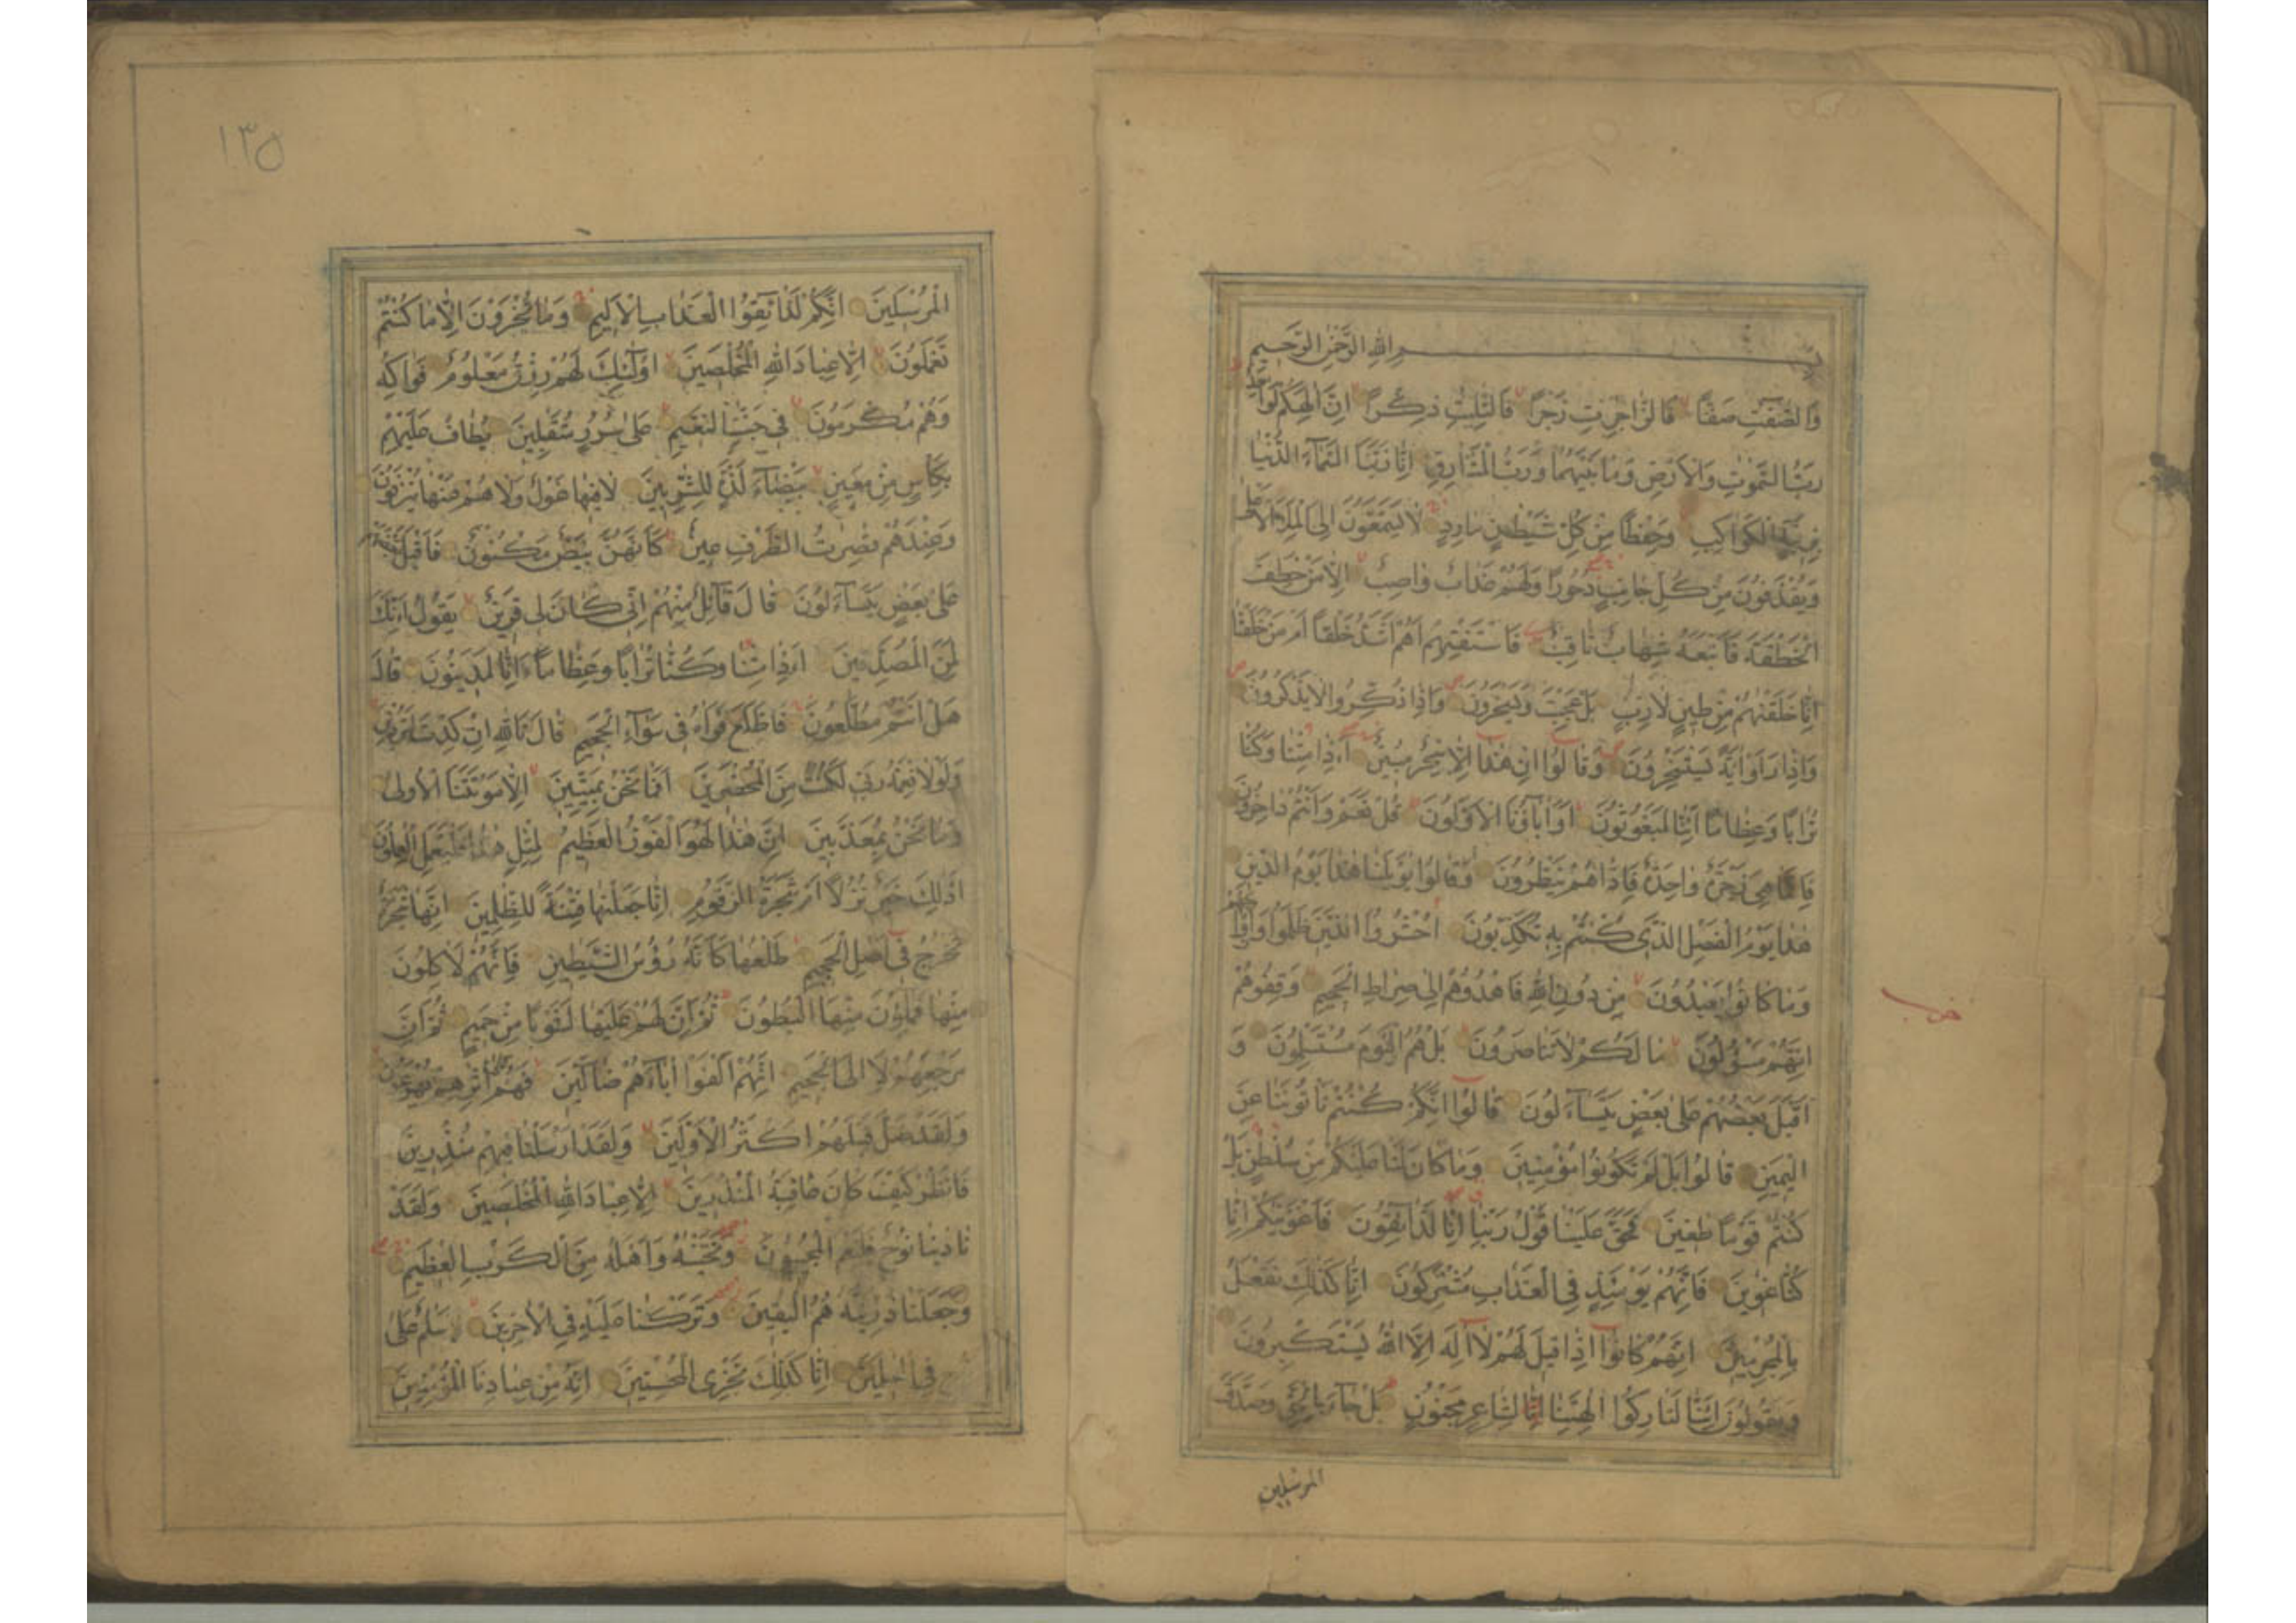 بسم الله الرحمن الرحيم
والصفت صفا فالزاجرت زجرا فالتليت ذكرا ان الهكم لواحد
رب السموت والارض وما بينهما ورب المشارق انا زينا السماء الدنيا
بزينة الكواكب وحفظا من كل شيطن مارد لا يسمعون الى الملا الاعلى
ويقذفون من كل جانب دحورا ولهم عذاب واصب الا من خطف
الخطفة فاتبعه شهاب ثاقب فاستفتهم اهم اشد خلقا ام من خلقنا
انا خلقنهم من طين لازب بل عجبت ويسخرون واذا ذكروا لا يذكرون
واذا راوا اية يستسخرون وقالوا ان هذا الا سحر مبين ءاذا متنا وكنا
ترابا وعظاما ائنا لمبعوثون اواباؤنا الاولون قل نعم وانتم داخرون
فانما هي زجرة واحدة فاذا هم ينظرون وقالوا يويلنا هذا يوم الدين
هذا يوم الفصل الذي كنتم به تكذبون احشروا الذين ظلموا وازواجهم
وما كانوا يعبدون من دون الله فاهدوهم الى صراط الجحيم وقفوهم
انهم مسؤلون ما لكم لا تناصرون بل هم اليوم مستسلمون و
اقبل بعضهم على بعض يتساءلون قالوا انكم كنتم تاتوننا عن
اليمين قالوا بل لم تكونوا مؤمنين وما كان لنا عليكم من سلطن بل
كنتم قوما طغين فحق علينا قول ربنا انا لذائقون فاغوينكم انا
كنا غوين فانهم يومئذ في العذاب مشتركون انا كذلك نفعل
بالمجرمين انهم كانوا اذا قيل لهم لا اله الا الله يستكبرون
ويقولون ائنا لتاركوا الهتنا لشاعر مجنون بل جاء بالحق وصدق
المرسلين
١٣٥
المرسلين انكم لذائقوا العذاب الاليم وما تجزون الا ما كنتم
تعملون الا عباد الله المخلصين اولئك لهم رزق معلوم فواكه
وهم مكرمون في جنت النعيم على سرر متقبلين يطاف عليهم
بكاس من معين بيضاء لذة للشربين لا فيها غول ولا هم عنها ينزفون
وعندهم قصرت الطرف عين كانهن بيض مكنون فاقبل بعضهم
على بعض يتساءلون قال قائل منهم اني كان لي قرين يقول ائنك
لمن المصدقين ءاذا متنا وكنا ترابا وعظاما ءانا لمدينون قال
هل انتم مطلعون فاطلع فراه في سواء الجحيم قال تالله ان كدت لتردين
ولولا نعمة ربي لكنت من المحضرين افما نحن بميتين الا موتتنا الاولى
وما نحن بمعذبين ان هذا لهو الفوز العظيم لمثل هذا فليعمل العملون
اذلك خير نزلا ام شجرة الزقوم انا جعلنها فتنة للظلمين انها شجرة
تخرج في اصل الجحيم طلعها كانه رؤس الشيطين فانهم لاكلون
منها فمالؤن منها البطون ثم ان لهم عليها لشوبا من حميم ثم ان
مرجعهم لا الى الجحيم انهم الفوا اباءهم ضالين فهم على اثرهم يهرعون
ولقد ضل قبلهم اكثر الاولين ولقد ارسلنا فيهم منذرين
فانظر كيف كان عاقبة المنذرين الا عباد الله المخلصين ولقد
نادينا نوح فلنعم المجيبون ونجينه واهله من الكرب العظيم
وجعلنا ذريته هم البقين وتركنا عليه في الاخرين سلم على
نوح في العلمين انا كذلك نجزي المحسنين انه من عبادنا المؤمنين